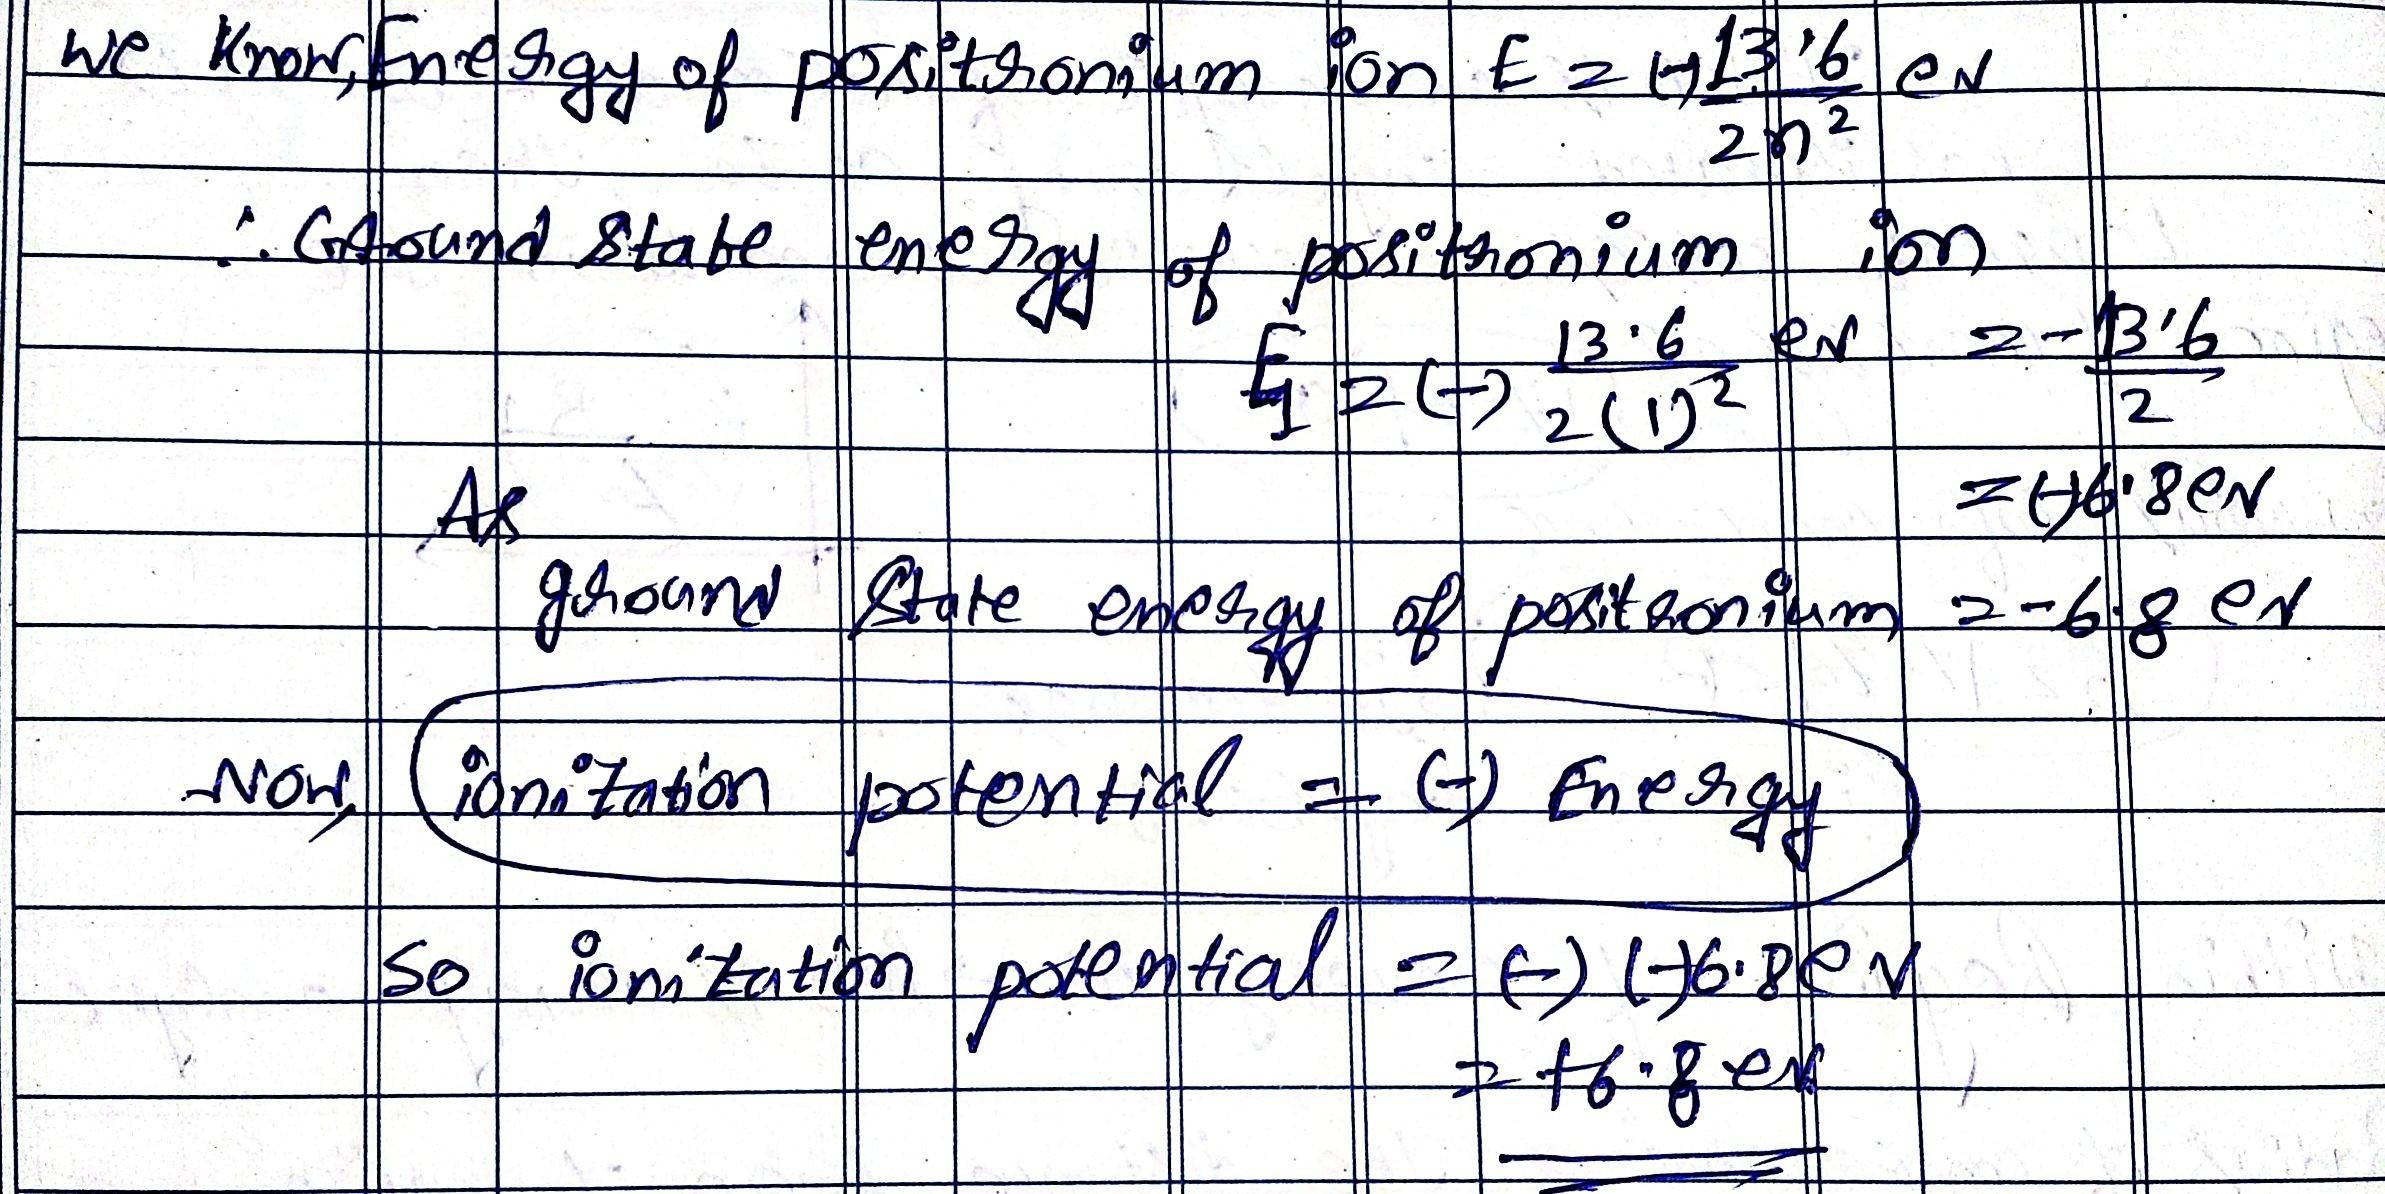 we know, Energy of positronium ion E = (-) 13.6 / 2n² ev
∴ Ground State energy of positronium ion
E₁ = (-) 13.6 / 2(1)² ev = - 13.6 / 2
= (-)6.8 ev
As
ground State energy of positronium = -6.8 ev
Now, ionization potential = (-) Energy
So ionization potential = (-) (-)6.8 ev
= +6.8 ev